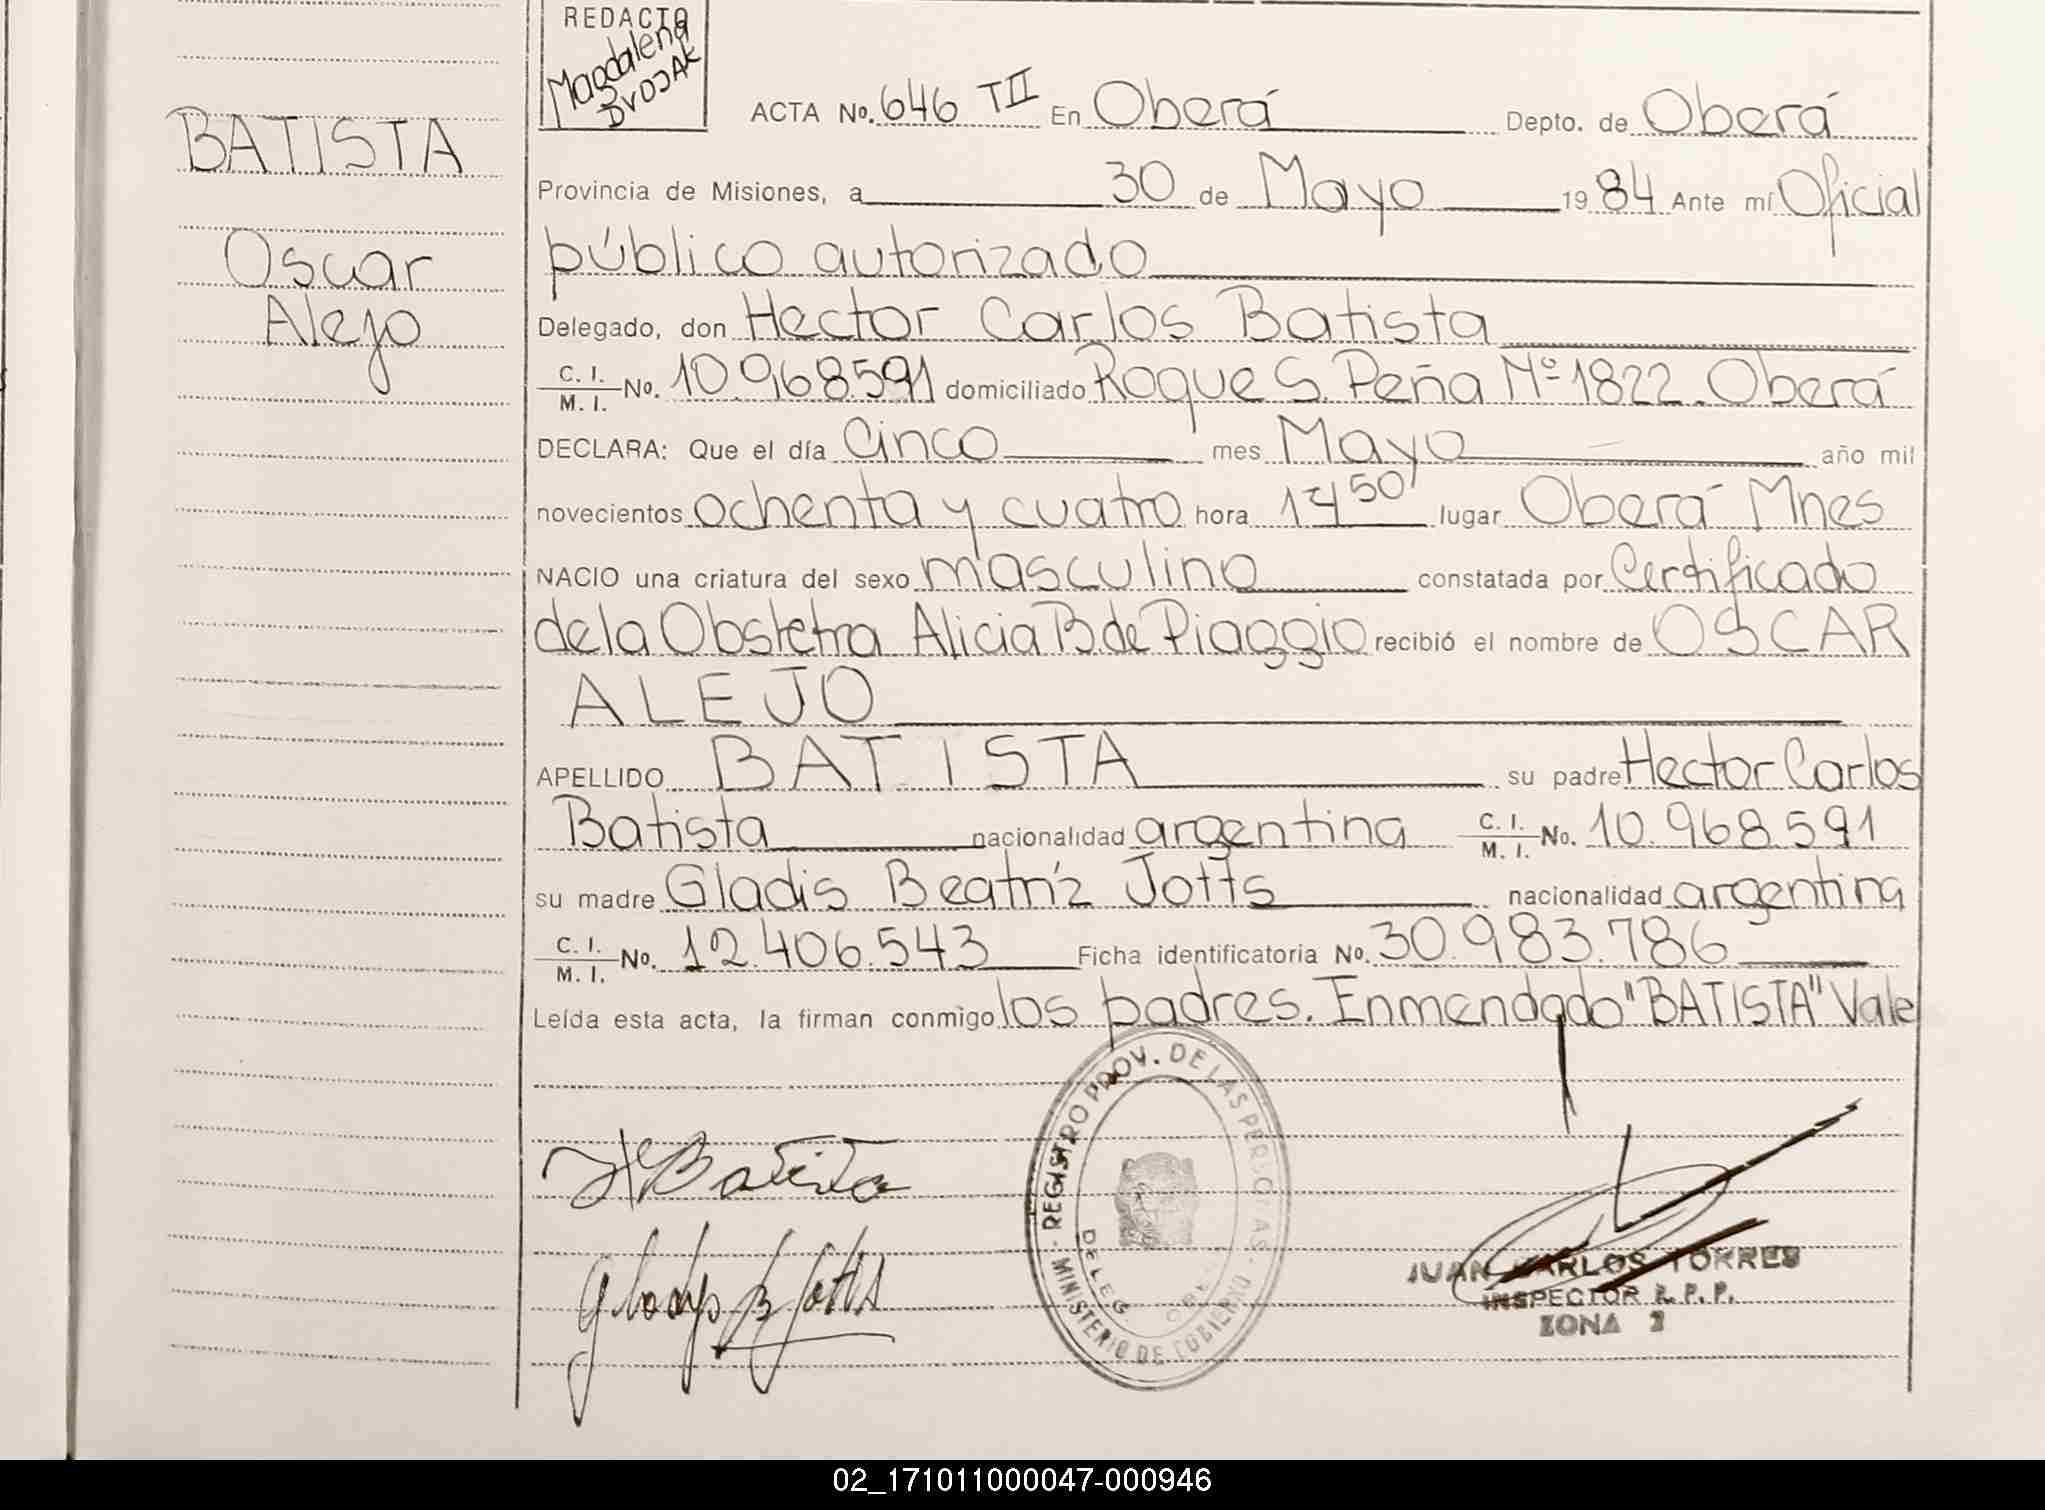 REDACTO
Magdalena
DVOJAK
ACTA No. 646 TII En Oberá Depto. de Oberá
BATISTA
Provincia de Misiones, a 30 de Mayo 1984 Ante mí Oficial
público autorizado
Oscar
Alejo
Delegado, don Hector Carlos Batista
C. I. / M. I. No. 10.968.591 domiciliado Roque S. Peña Nº 1822. Oberá
DECLARA: Que el día Cinco mes Mayo año mil
novecientos ochenta y cuatro hora 14 50' lugar Oberá Mnes
NACIO una criatura del sexo masculino constatada por Certificado
de la Obstetra Alicia B. de Piaggio recibió el nombre de OSCAR
ALEJO
APELLIDO BATISTA su padre Hector Carlos
Batista nacionalidad argentina C. I. / M. I. No. 10.968.591
su madre Gladis Beatríz Jotts nacionalidad argentina
C. I. / M. I. No. 12.406.543 Ficha identificatoria No. 30.983.786
Leída esta acta, la firman conmigo los padres. Enmendado "BATISTA" Vale
REGISTRO PROV. DE LAS PERSONAS
MINISTERIO DE GOBIERNO
DELEG.
H Batista
Gladys B Jotts
JUAN CARLOS TORRES
INSPECTOR R. P. P.
ZONA 2
02_171011000047-000946